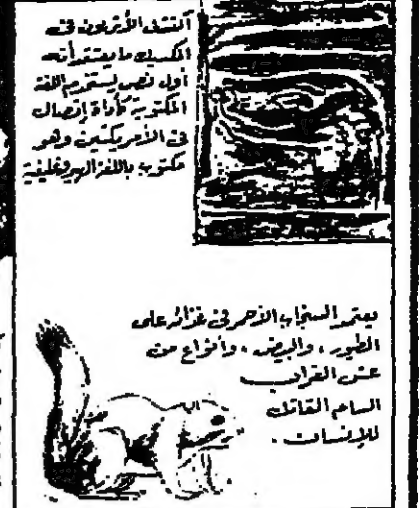 اكتشف الأثريون فى
المكسيك ما يعتقد أنه
أول نص يستخدم اللغة
المكتوبة كأداة إتصال
فى الأمريكتين وهو
مكتوب باللغة الهيروغليفية
يعتمد السنجاب الأحمر فى غذائه على
الطيور ، والبيض ، وأنواع من
عش الغراب
السام القاتل
للإنسان .